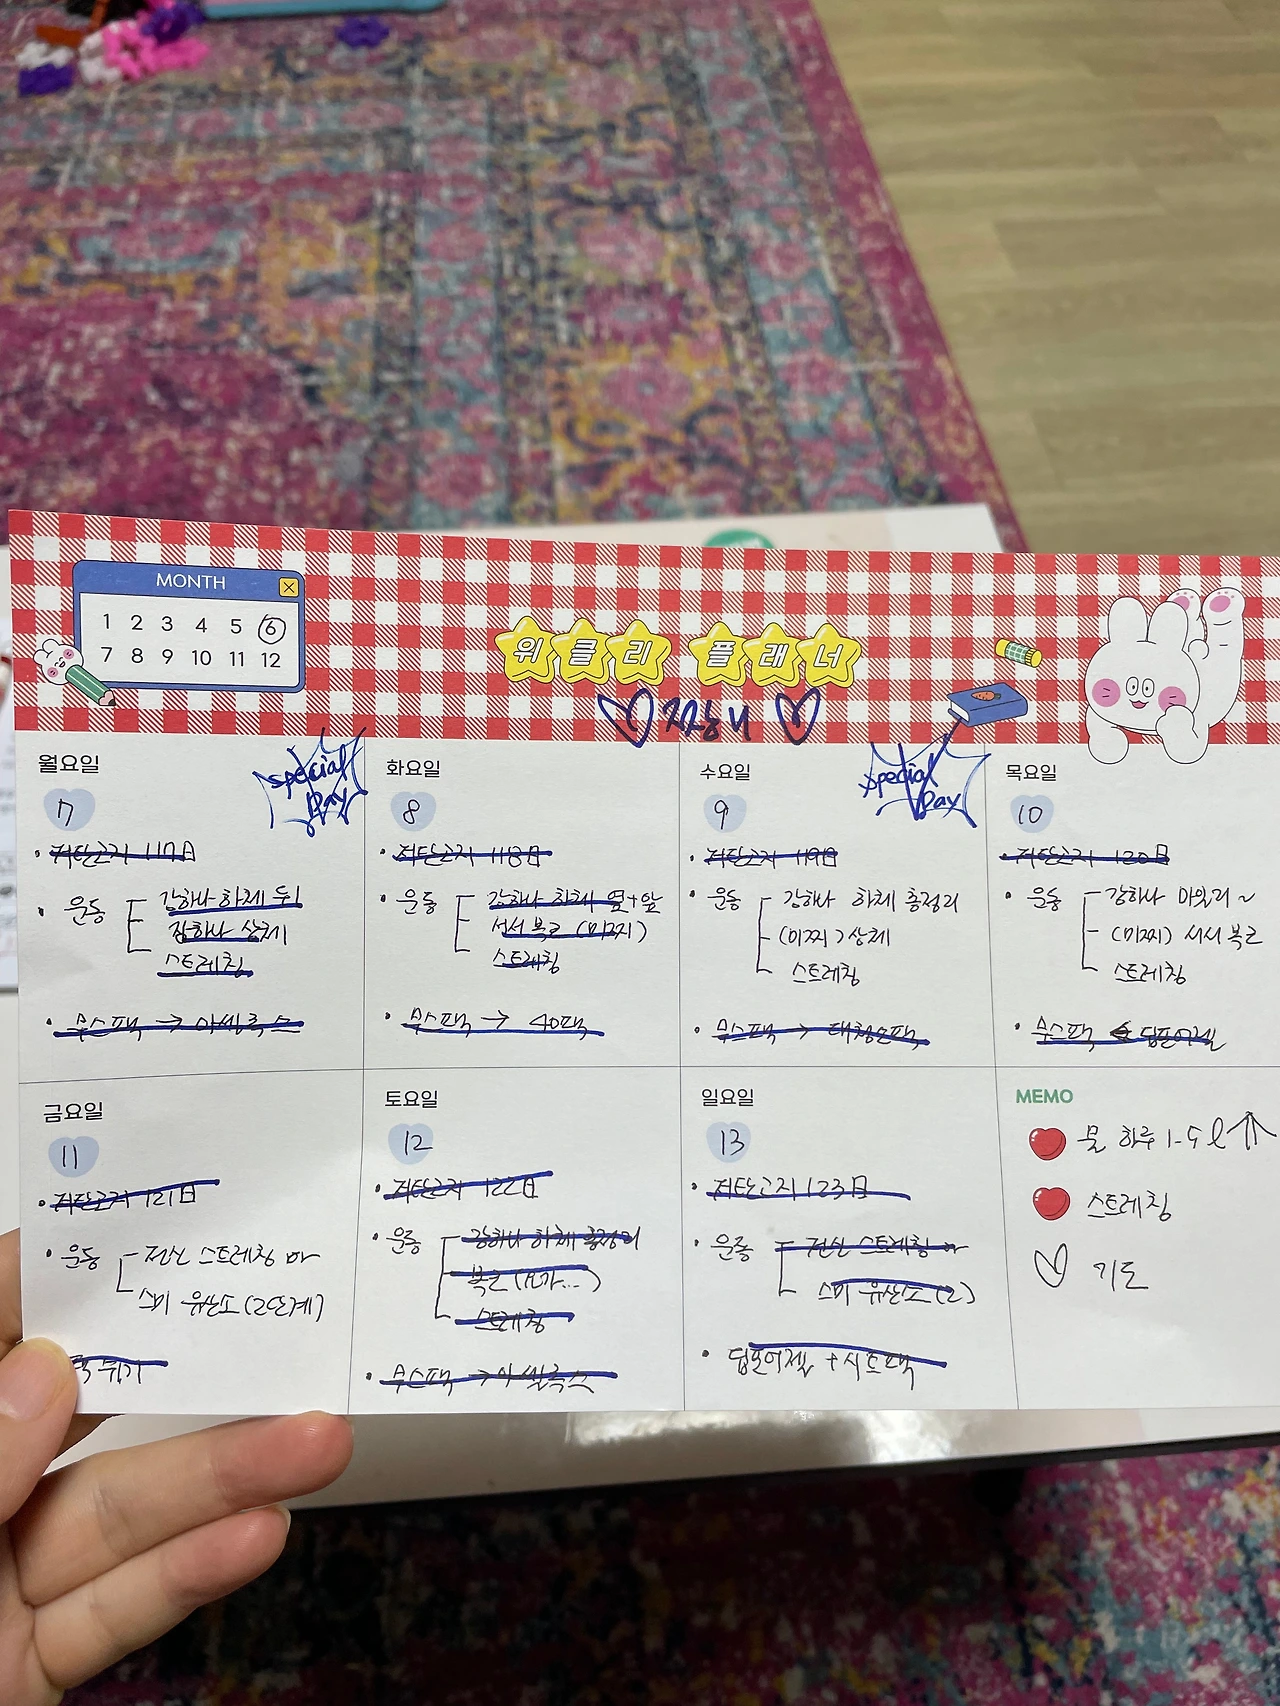 MONTH
1 2 3 4 5 6
7 8 9 10 11 12
위클리 플래너
월요일
special Day
7
저탄고지 117日
운동
강하나 하체 뒤
강하나 상체
스트레칭
무스팩 → 아씰룩스
화요일
8
저탄고지 118日
운동
강하나 하체 옆+앞
서서 복근 (미찌)
스트레칭
무스팩 → 40팩
수요일
special Day
9
저탄고지 119日
운동
강하나 하체 총정리
(미찌) 상체
스트레칭
무스팩 →
목요일
10
저탄고지 120日
운동
강하나
(미찌) 서서 복근
스트레칭
무스팩
금요일
11
저탄고지 121日
운동
전신 스트레칭
스미 유산소 (2단계)
토요일
12
저탄고지 122日
운동
강하나 하체 총정리
복근 (요가...)
스트레칭
무스팩 → 아씰룩스
일요일
13
저탄고지 123日
운동
전신 스트레칭
스미 유산소 (2)
딥모어젤 + 시트팩
MEMO
물 하루 1.5ℓ ↑
스트레칭
기도